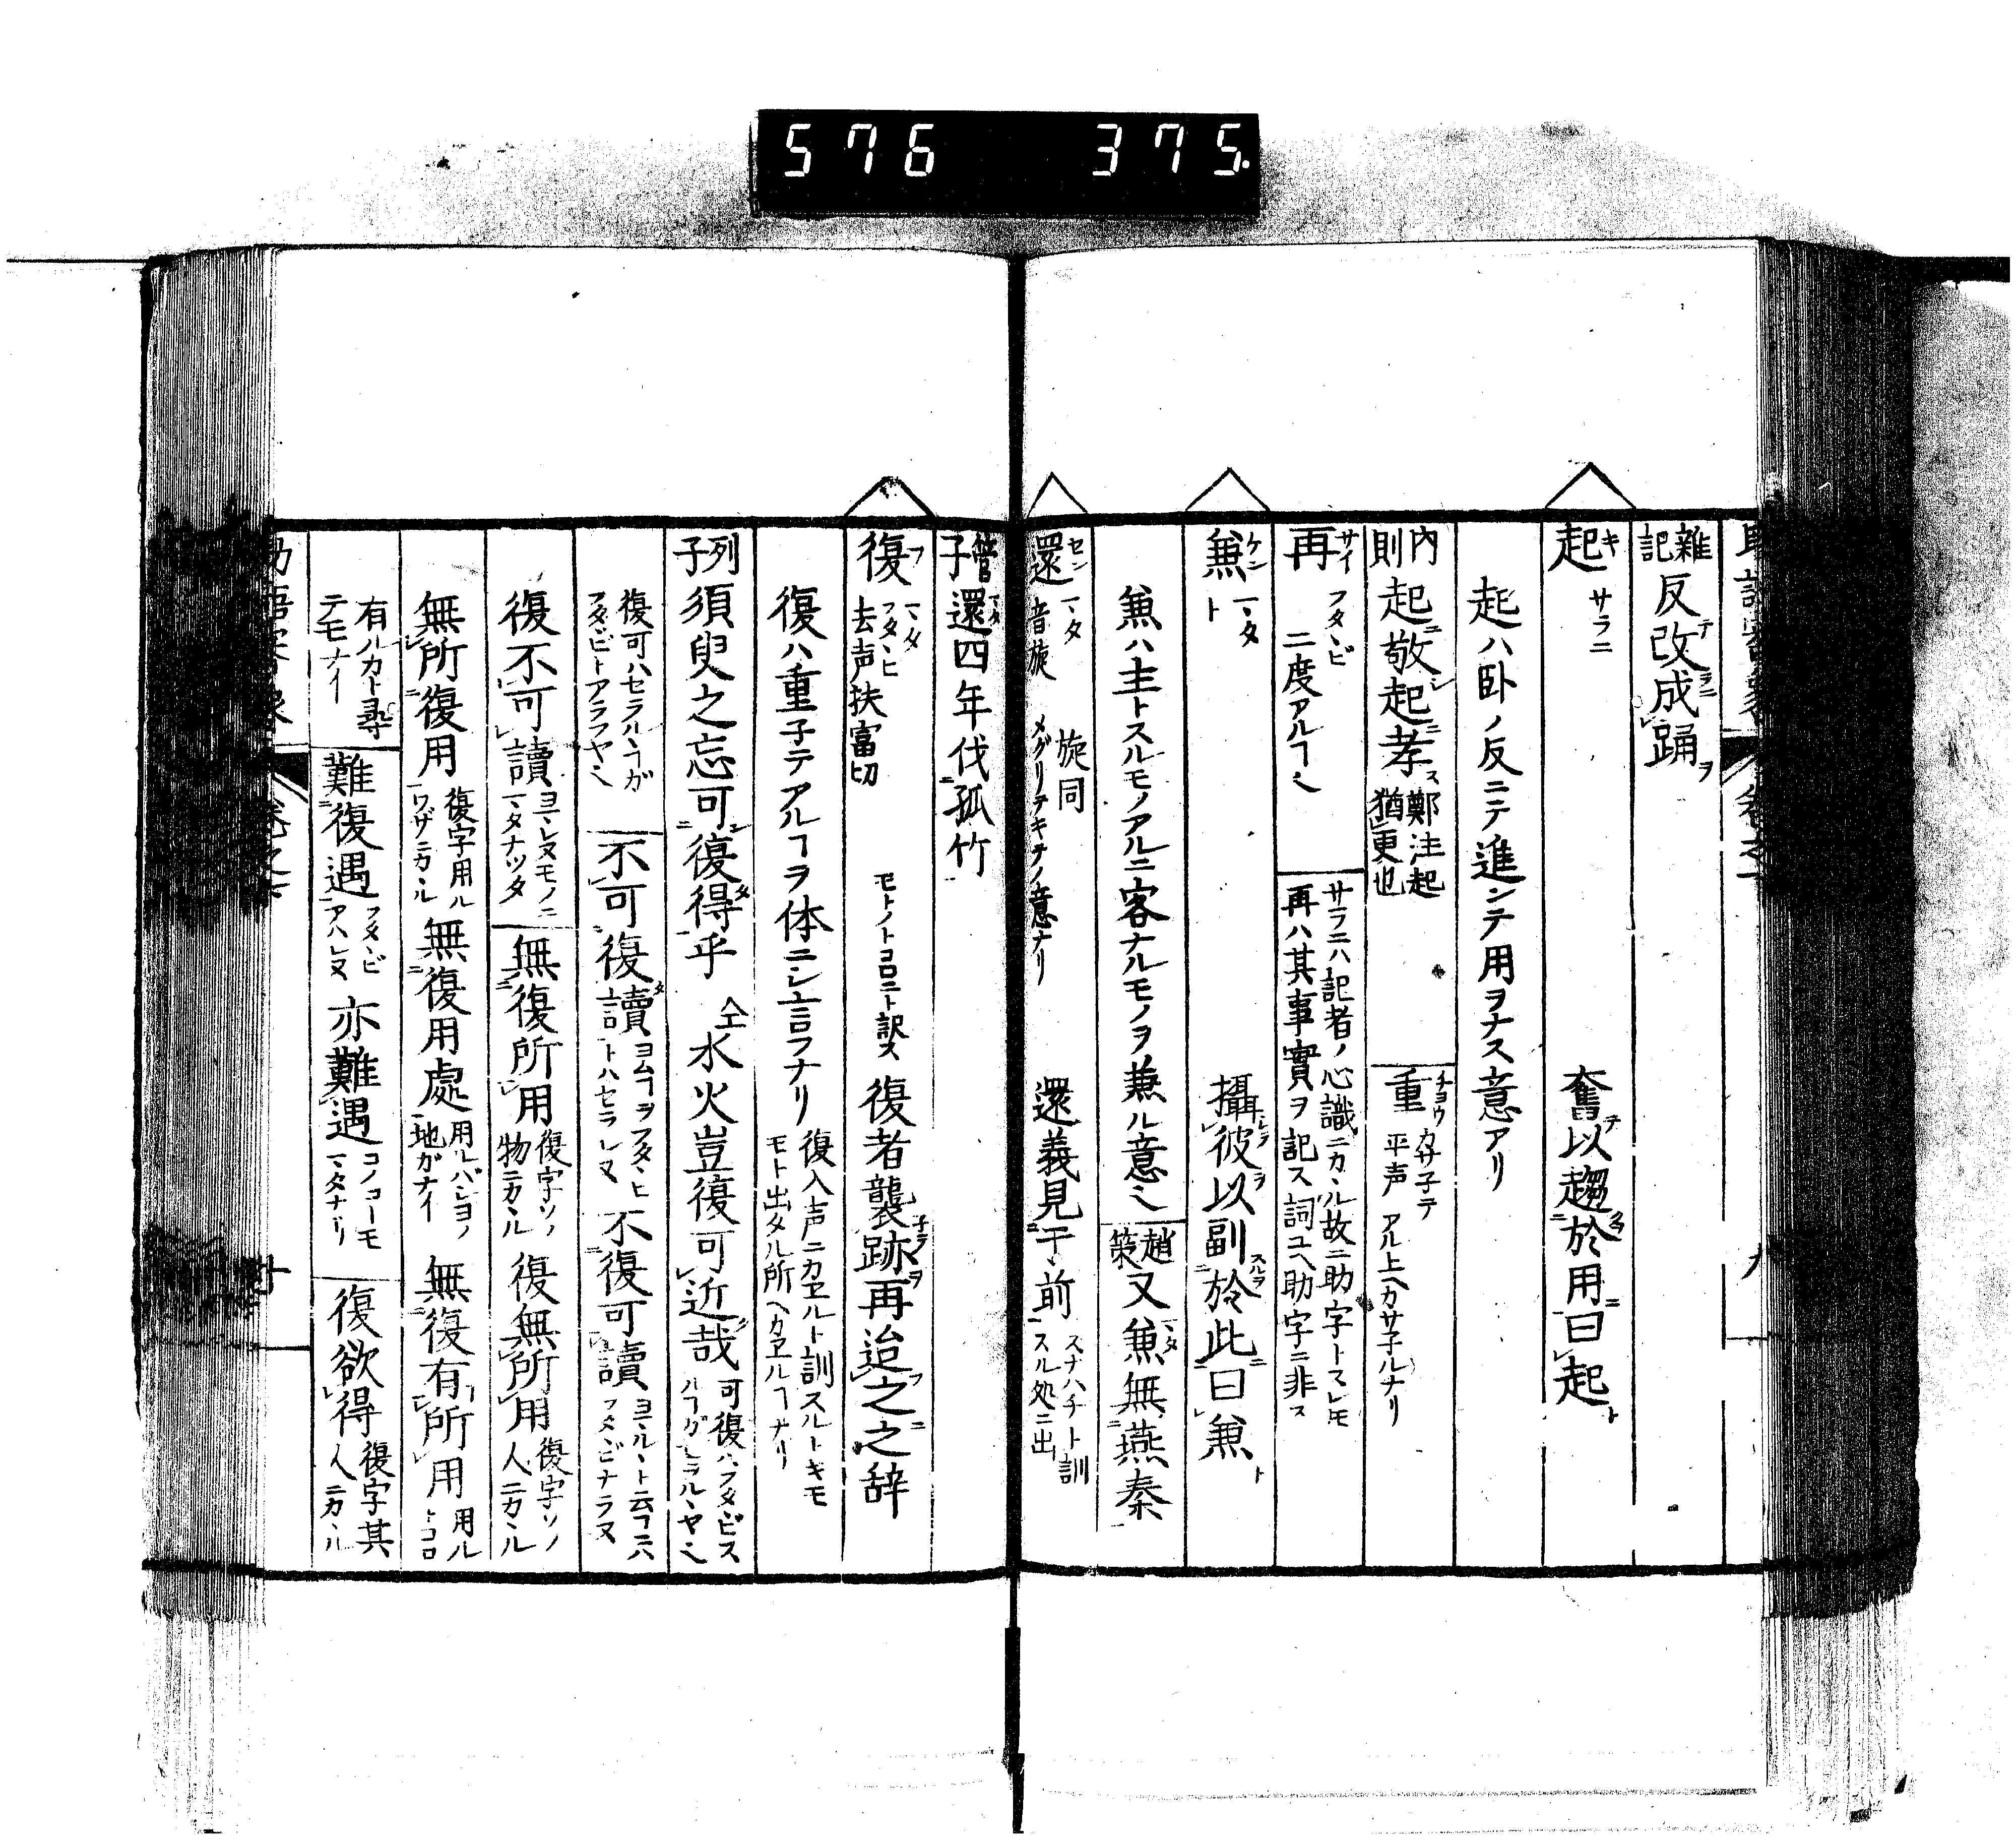 576 375.
雜記 反改成踊
起 キ サラニ 奮以趨於用曰起
起ハ卧ノ反ニテ進ンテ用ヲナス意アリ
內則 起敬起孝 鄭注起猶更也 重 チヨウ カサ子テ 平声 アル上ヘカサ子ルナリ
再 サイ フタヽビ 二度アルヿ也 サラニハ記者ノ心識ニカヽル故ニ助字トスレモ 再ハ其事實ヲ記ス詞ユヘ助字ニ非ス
兼 ケン マタ ト 攝彼以副於此曰兼
兼ハ主トスルモノアルニ客ナルモノヲ兼ル意也 趙策 又兼無燕秦
還 セン マタ 音旋 旋同 メグリテキテノ意ナリ 還義見于前 スナハチト訓スル処ニ出
管子 還四年伐孤竹
復 フ マタ フタヽヒ 去声扶富切 モトノトコロニト訳ス 復者襲跡再迨之之辞
復ハ重子テアルヿヲ体ニシ言フナリ 復入声ニカヱルト訓スルトキモ モト出タル所ヘカヱルヿナリ
列子 須臾之忘可復得乎 仝 水火豈復可近哉 可復ハフタヽビスルヿガセラルヽヤ也
復可ハセラルヽヿガフタヽビトアラフヤ也 不可復讀 ヨムヿヲフタヽヒトハセラレヌ 不復可讀 ヨマルヽト云ヿ六フタヽビナラヌ
復不可讀 ヨマレヌモノニマタナツタ 無復所用 復字ソノ物ニカヽル 復無所用 復字ソノ人ニカヽル
無所復用 復字用ルワザニカヽル 無復用處 用ルバシヨノ地ガナイ 無復有所用 用ルトコロ
有ルカト尋テモナイ 難復遇 フタヽビアハレヌ 亦難遇 コノコーモマタナリ 復欲得 復字其人ニカヽル